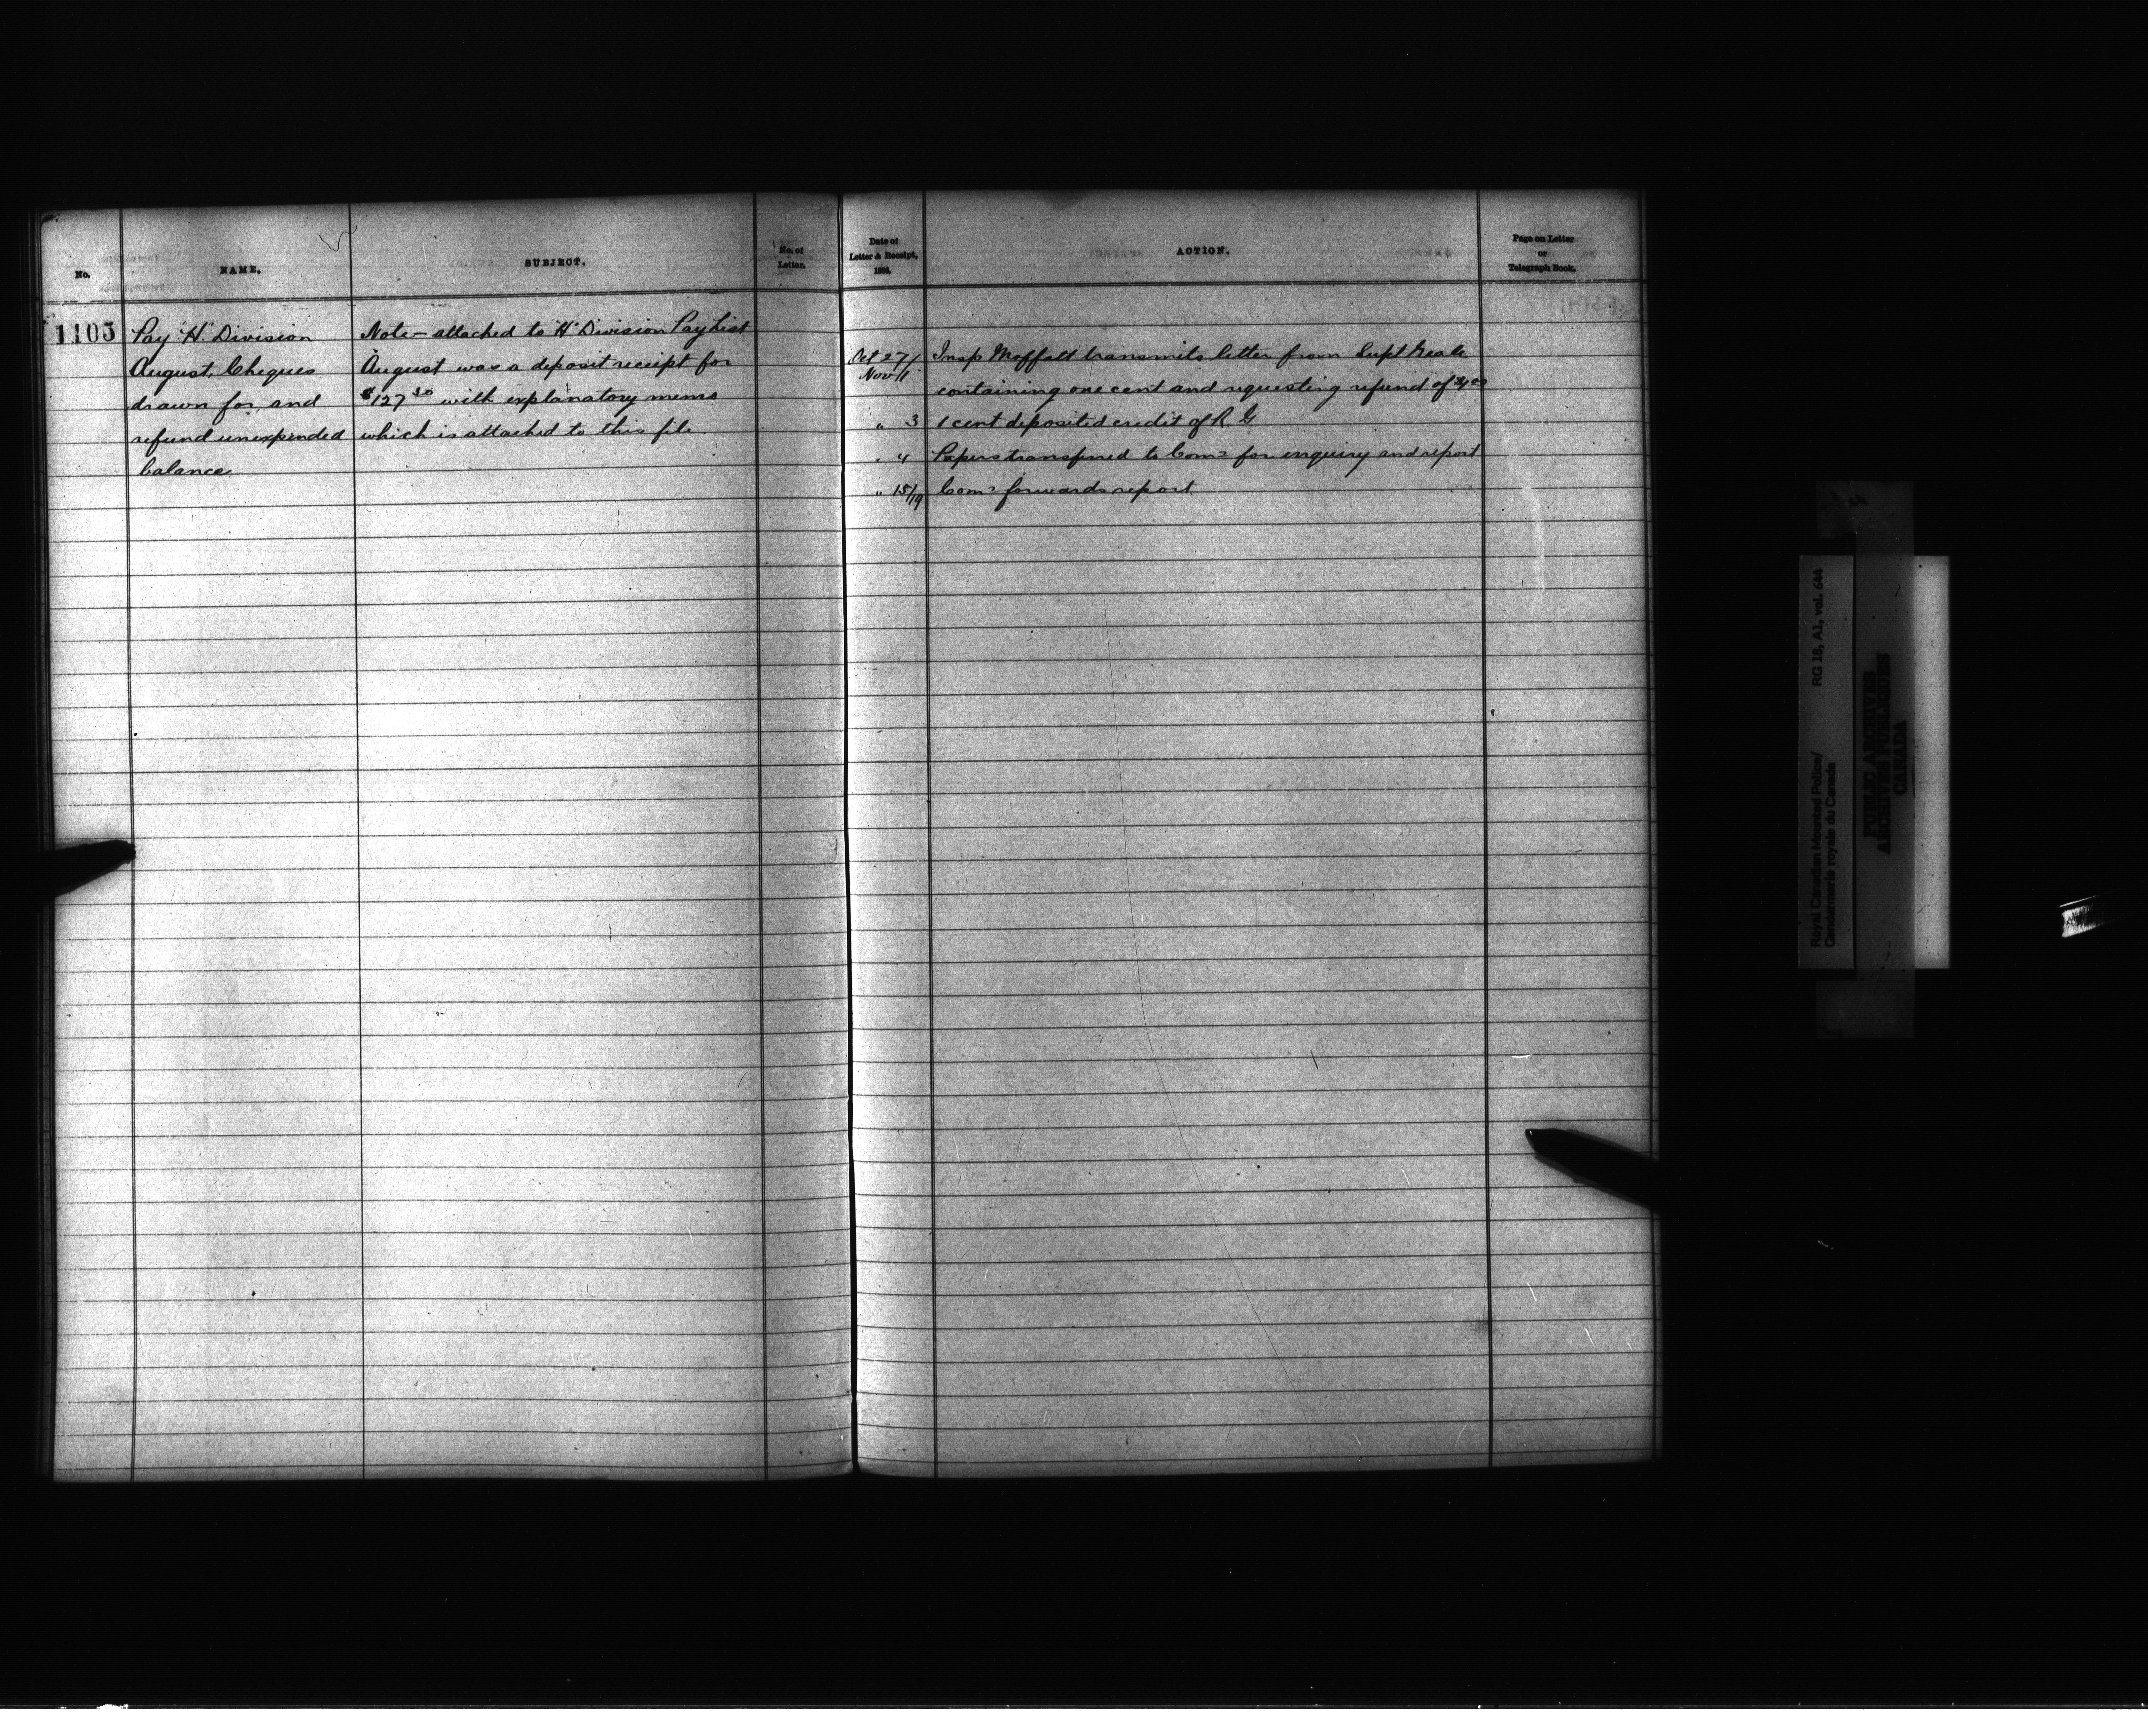 No.
NAME.
SUBJECT.
No. of
Letter.
1105
Pay "H" Division
August, Cheques
drawn for, and
refund unexpended
balance
Note - attached to "H" Division Pay List
August was a deposit receipt for
$127 30 with explanatory memo
which is attached to this file
Date of
Letter & Receipt,
188
ACTION.
Page on Letter
or
Telegraph Book.
Oct 27/ Insp Moffatt transmits letter from Supt Neale
Nov 1 containing one cent and requesting refund of
" 3 1 cent deposited credit of R G
" 4 Papers transferred to Comr for enquiry and report
" 15/19 Comr forwards report
Royal Canadian Mounted Police/ RG 18, A1, vol. 644
Gendarmerie royale du Canada
PUBLIC ARCHIVES
ARCHIVES PUBLIQUES
CANADA